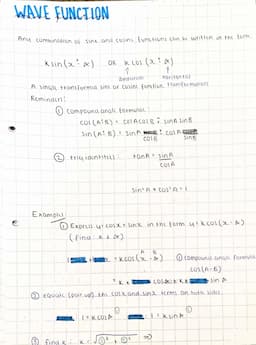 WAVE FUNCTION
Any combination of sine and cosine functions can be written in the form
k sin (x ± α) OR k cos (x ± α)
A single transformed sine or cosine function.
Reminders:
① Compound angle formulae
cos (A ± B) = cosA cosB ∓ sinA sinB
sin (A ± B) = sinA cosB ± cosA sinB
② trig identities: tanA = sinA
cosA
sin²A + cos²A = 1
Example:
① Express y = cosx + sinx in the form y = k cos (x - α)
(find k & α)
A B
= k cos (x - α) ① compound angle formula
cos (A-B)
② equate (pair up) the cosx and sinx terms on both sides.
1 = k cosα 1 = k sinα
③ find k: k = √